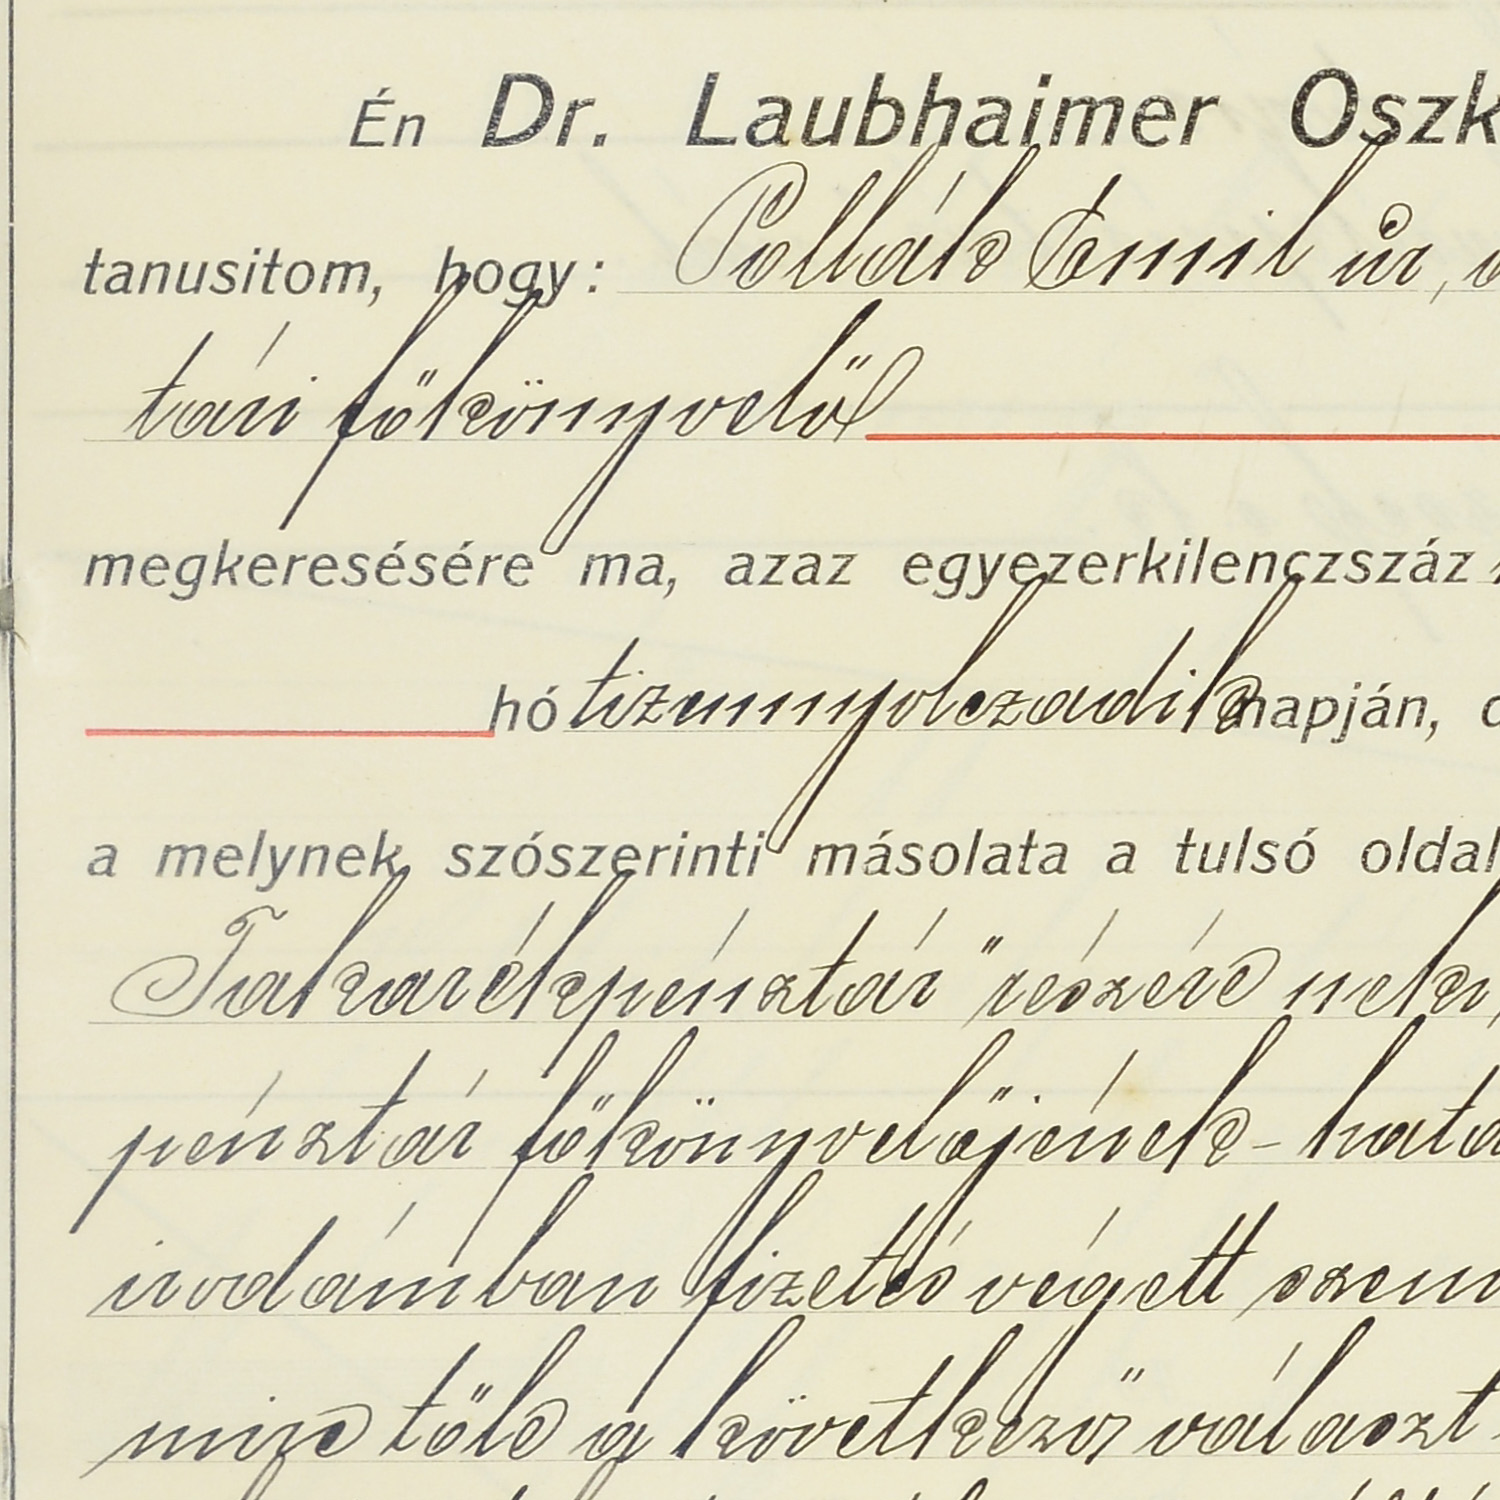 Én Dr. Laubhaimer Oszk
tanusitom, hogy: Pollák Emil úr,
tári főkönyvelő
megkeresésére ma, azaz egyezerkilenczszáz
hó tizennyolczadik napján,
a melynek szószerinti másolata a tulsó oldal
Takarékpénztár" részére
pénztár főkönyvelőjének - hata
irodámban fizetés végett szem
mire tőle a következő választ